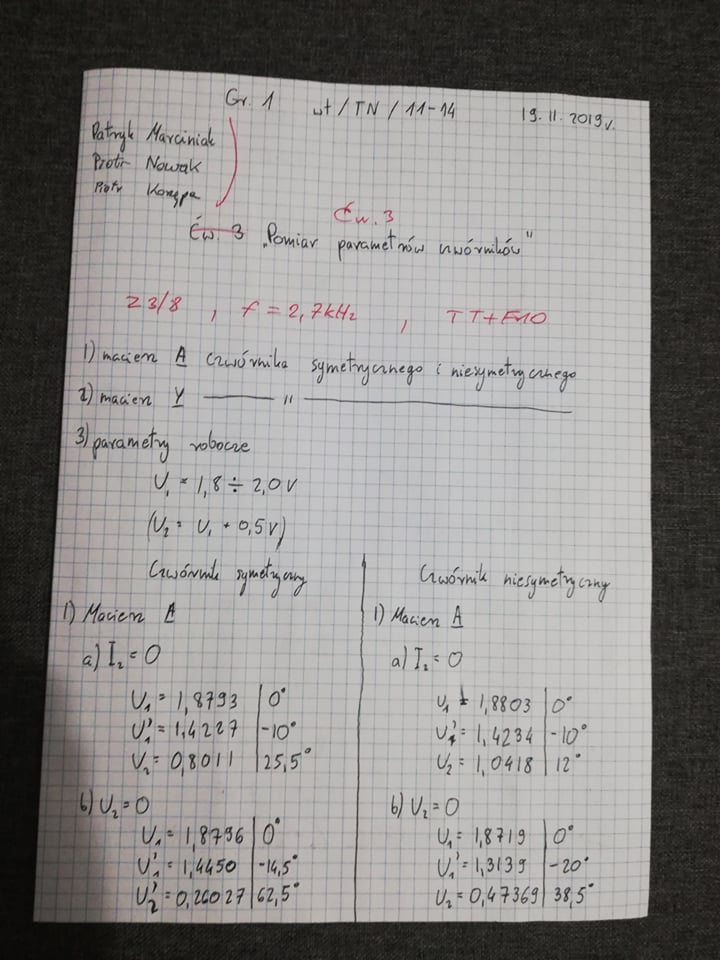 Gr. 1 wt / TN / 11-14 19. 11. 2019r.
Patryk Marciniak
Piotr Nowak
Piotr
Ćw. 3
Ćw. 3 „Pomiar parametrów czwórników"
Z3/8 , f = 2,7kHz , TT+FMO
1) macierz A czwórnika symetrycznego i niesymetrycznego
2) macierz Y —— 〃 ——
3) parametry robocze
U₁ = 1,8 ÷ 2,0 V
(U₂ = U₁ + 0,5 V)
Czwórnik symetryczny
1) Macierz A
a) I₂ = 0
U₁ = 1,8793 | 0°
U₁' = 1,4227 | -10°
U₂ = 0,8011 | 25,5°
b) U₂ = 0
U₁ = 1,8796 | 0°
U₁' = 1,4450 | -14,5°
U₂' = 0,26027 | 62,5°
Czwórnik niesymetryczny
1) Macierz A
a) I₂ = 0
U₁ = 1,8803 | 0°
U₁' = 1,4234 | -10°
U₂ = 1,0418 | 12°
b) U₂ = 0
U₁ = 1,8719 | 0°
U₁' = 1,3139 | -20°
U₂ = 0,47369 | 38,5°